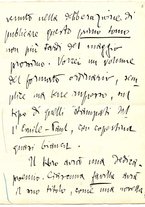 venuto nella deliberazione di
pubblicare questo primo tomo
non più tardi del maggio
prossimo. Vorrei un volume
del formato ordinario, sem
plice ma bene impresso, nel
tipo di quelli stampati dal
l'Emile-Paul, con copertina
quasi bianca.
Il libro avrà una Dedica
proemio. Ciascuna favilla avrà
il suo titolo, come una novella